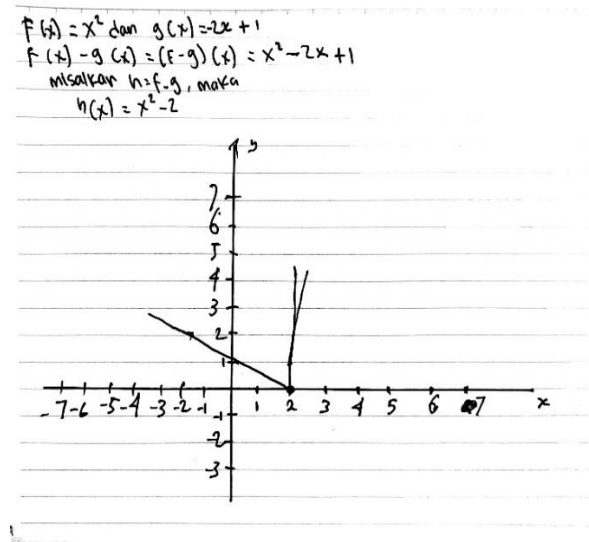 F(x) = x² dan g(x) = -2x + 1
F(x) - g(x) = (F-g)(x) = x² - 2x + 1
misalkan h = f-g, maka
h(x) = x² - 2
y
7
6
5
4
3
2
1
-7 -6 -5 -4 -3 -2 -1 1 2 3 4 5 6 7 x
-1
-2
-3